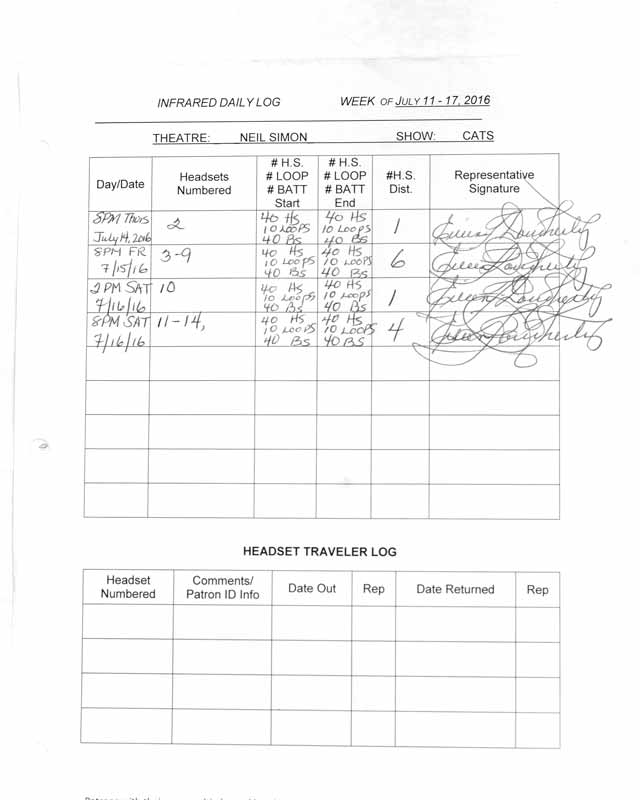 INFRARED DAILY LOG WEEK OF JULY 11 - 17, 2016
THEATRE: NEIL SIMON SHOW: CATS
Day/Date Headsets Numbered # H.S. # LOOP # BATT Start # H.S. # LOOP # BATT End #H.S. Dist. Representative Signature
8PM Thurs July 14, 2016 2 40 Hs 10 LOOPS 40 Bs 40 Hs 10 LOOPS 40 Bs 1 Eileen Dougherty
8PM FR 7/15/16 3-9 40 Hs 10 LOOPS 40 Bs 40 Hs 10 LOOPS 40 Bs 6 Eileen Dougherty
2PM SAT 7/16/16 10 40 Hs 10 LOOPS 40 Bs 40 Hs 10 LOOPS 40 Bs 1 Eileen Dougherty
8PM SAT 7/16/16 11-14, 40 Hs 10 LOOPS 40 Bs 40 Hs 10 LOOPS 40 Bs 4 Eileen Dougherty
HEADSET TRAVELER LOG
Headset Numbered Comments/ Patron ID Info Date Out Rep Date Returned Rep